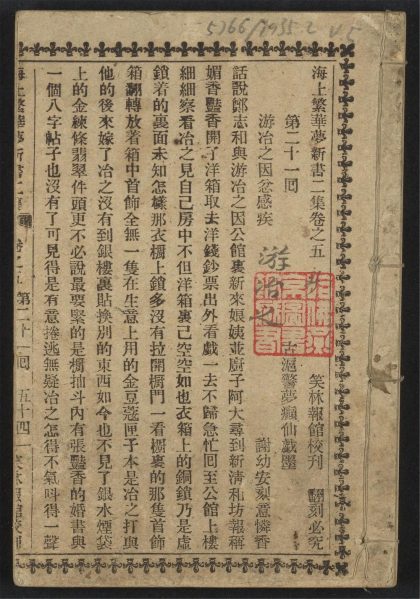 5766/1935.2 v.5
海上繁華夢新書二集卷之五
笑林報館校刊 翻刻必究
第二十一回
古滬警夢癡仙戲墨
游冶之因忿感疾
謝幼安刻意憐香
游冶之
話說鄧志和與游冶之因公館裏新來娘姨並廚子阿大尋到新清和坊報稱
媚香豔香開了洋箱取去洋錢鈔票出外看戲一去不歸急忙回至公館上樓
細細察看冶之見自己房中不但洋箱裏已空空如也衣箱上的銅鎖乃是虛
鎖着的裏面未知怎樣那衣櫥上鎖多沒有拉開櫥門一看櫥裏的那隻首飾
箱翻轉放着箱中首飾全無一隻在生意上用的金荳蔻匣子本是冶之打與
他的後來嫁了冶之沒有到銀樓裏貼換別的東西如今也不見了銀水煙袋
上的金練條翡翠件頭更不必說最要緊的是櫥抽斗內有張豔香的婚書與
一個八字帖子也沒有了可見得是有意捲逃無疑冶之怎得不氣呌得一聲
海上繁華夢新書二集 卷之五 第二十一回 五十四 笑林報館校刊